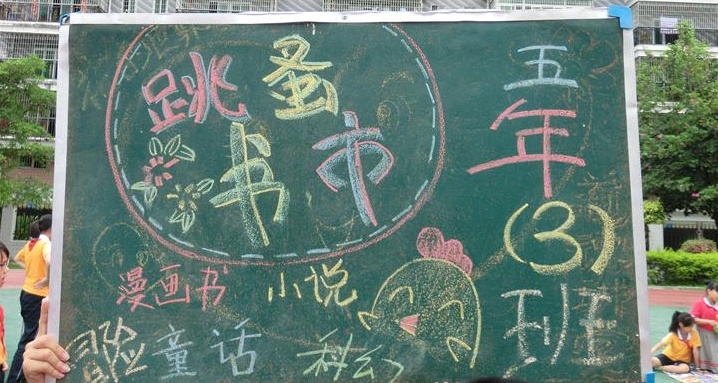 跳蚤
书市
五年(3)班
漫画书 小说
冒险 童话 科幻